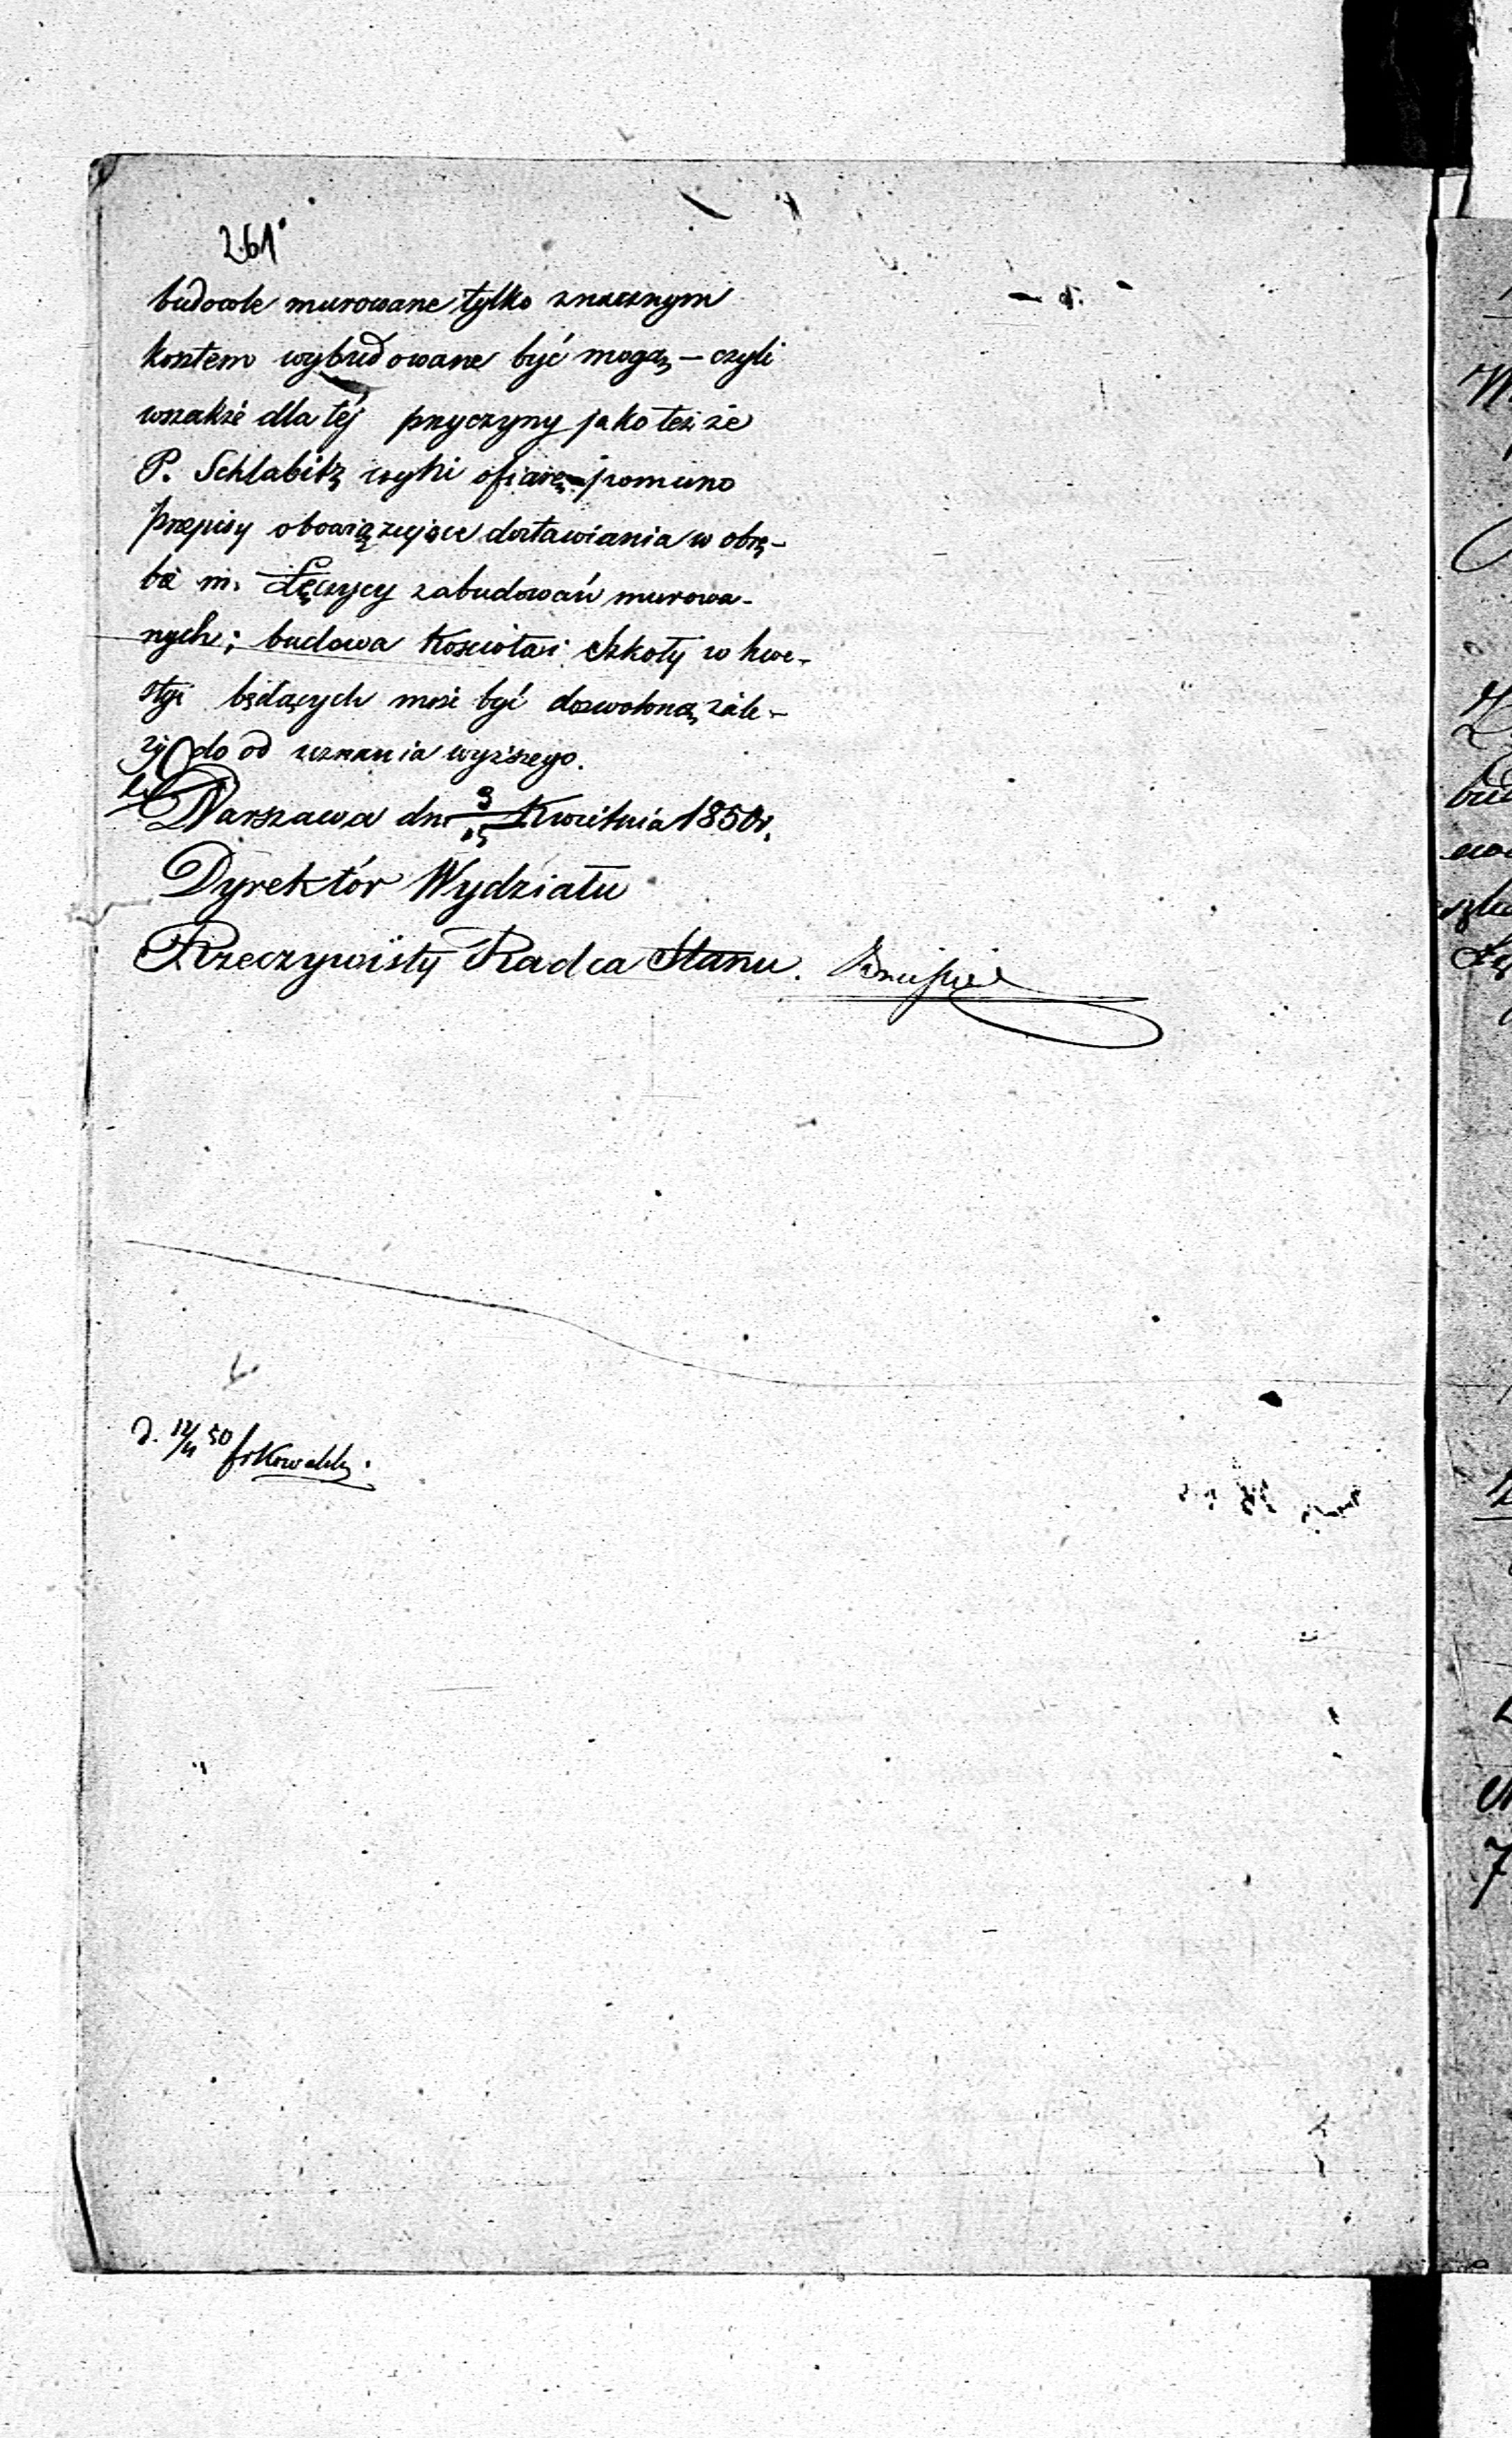 261
budowle murowane tylko znacznym
kosztem wybudowane być mogą, – czyli
wszakże dla téj przyczyny jako też że
P. Schlabitz ofiarę pomimo
przepisy obowiązujące dostawiania w obrę-
bie m. Łęczycy zabudowań murowa-
nych; budowa Kościoła i Szkoły w kwe-
styi będących może być dozwoloną, zale-
ży do od uznania wyższego.
Warszawa dn. 3/15 Kwietnia 1850 r.
Dyrektór Wydziału
Rzeczywisty Radca Stanu.
d. 12/4 50